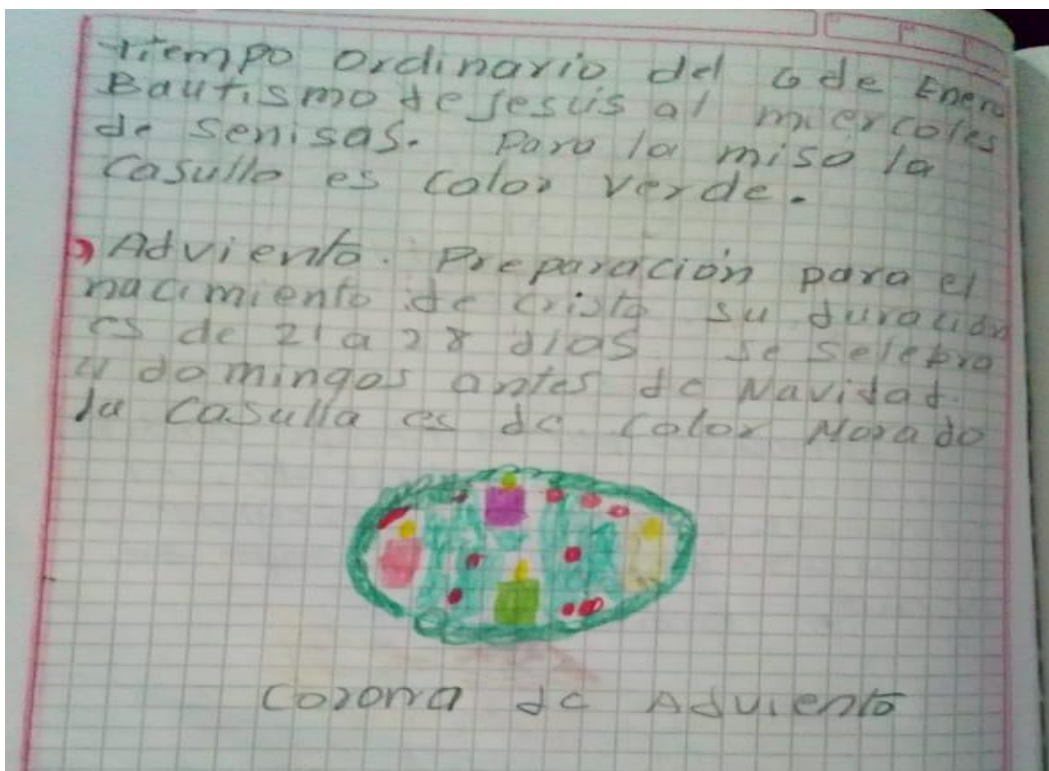 Tiempo Ordinario del 6 de Enero
Bautismo de Jesús al miercoles
de senisas. Para la misa la
Casulla es color verde.
Adviento. Preparación para el
nacimiento de Cristo su duración
es de 21 a 28 dias se selebra
4 domingos antes de Navidad.
la Casulla es de color Morado
Corona de Adviento